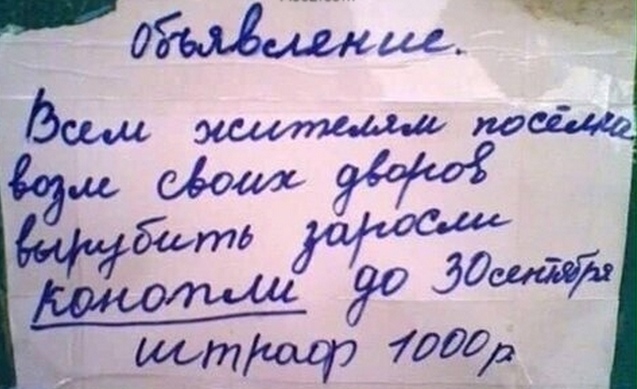 Объявление.
Всем жителям посёлка
возле своих дворов
вырубить заросли
конопли до 30 сентября
штраф 1000 р